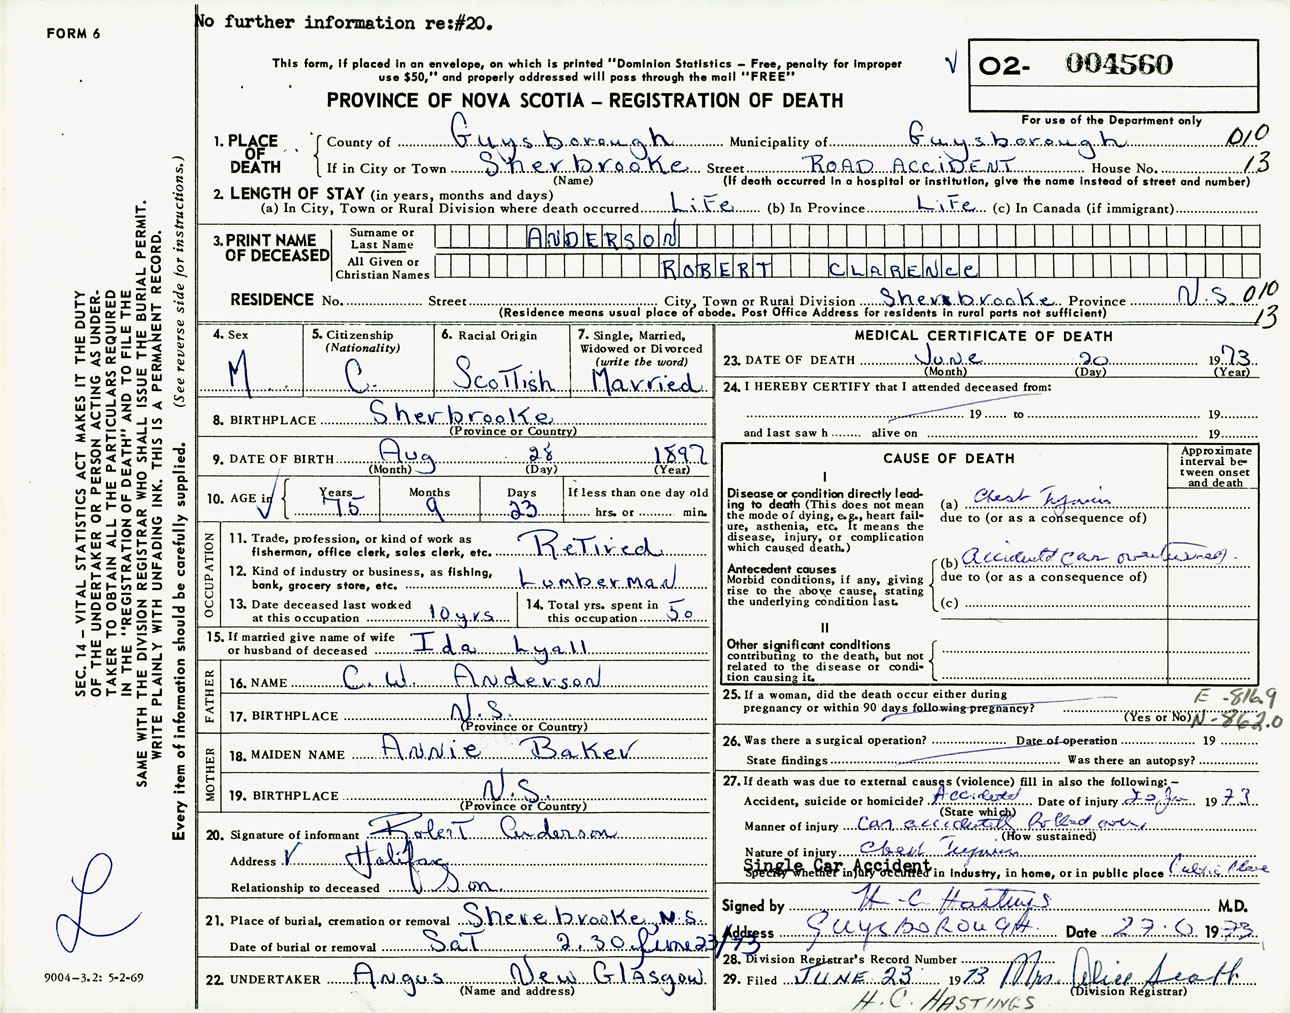 No further information re:#20.
FORM 6
This form, if placed in an envelope, on which is printed "Dominion Statistics – Free, penalty for improper
use $50," and properly addressed will pass through the mail "FREE"
PROVINCE OF NOVA SCOTIA – REGISTRATION OF DEATH
O2- 004560
For use of the Department only
1. PLACE OF DEATH
County of Guysborough Municipality of Guysborough 010
If in City or Town Sherbrooke Street ROAD ACCIDENT House No. 13
(Name) (If death occurred in a hospital or institution, give the name instead of street and number)
2. LENGTH OF STAY (in years, months and days)
(a) In City, Town or Rural Division where death occurred LiFe (b) In Province LiFe (c) In Canada (if immigrant)
3. PRINT NAME OF DECEASED
Surname or Last Name ANDERSON
All Given or Christian Names ROBERT CLARENCE
RESIDENCE No. Street City, Town or Rural Division Sherbrooke Province N.S. 010
(Residence means usual place of abode. Post Office Address for residents in rural parts not sufficient) 13
4. Sex M
5. Citizenship (Nationality) C.
6. Racial Origin Scottish
7. Single, Married, Widowed or Divorced (write the word) Married
8. BIRTHPLACE Sherbrooke
(Province or Country)
9. DATE OF BIRTH Aug 28 1897
(Month) (Day) (Year)
10. AGE in Years 75 Months 9 Days 23 If less than one day old
hrs. or min.
OCCUPATION
11. Trade, profession, or kind of work as
fisherman, office clerk, sales clerk, etc. Retired
12. Kind of industry or business, as fishing,
bank, grocery store, etc. Lumberman
13. Date deceased last worked
at this occupation 10 yrs
14. Total yrs. spent in
this occupation 50
15. If married give name of wife
or husband of deceased Ida Lyall
FATHER
16. NAME C. W. Anderson
17. BIRTHPLACE N.S.
(Province or Country)
MOTHER
18. MAIDEN NAME Annie Baker
19. BIRTHPLACE N.S.
(Province or Country)
20. Signature of informant Robert Anderson
Address Halifax
Relationship to deceased Son
21. Place of burial, cremation or removal Sherebrooke N.S.
Date of burial or removal Sat 2.30 June 23/73
22. UNDERTAKER Angus New Glasgow
(Name and address)
MEDICAL CERTIFICATE OF DEATH
23. DATE OF DEATH June 20 1973
(Month) (Day) (Year)
24. I HEREBY CERTIFY that I attended deceased from:
19 to 19
and last saw h alive on 19
CAUSE OF DEATH
Approximate interval between onset and death
I
Disease or condition directly lead-
ing to death (This does not mean
the mode of dying, e.g., heart fail-
ure, asthenia, etc. It means the
disease, injury, or complication
which caused death.)
(a) Chest Injuries
due to (or as a consequence of)
Antecedent causes
Morbid conditions, if any, giving
rise to the above cause, stating
the underlying condition last.
(b) Accident car overturned.
due to (or as a consequence of)
(c)
II
Other significant conditions
contributing to the death, but not
related to the disease or condi-
tion causing it.
25. If a woman, did the death occur either during
pregnancy or within 90 days following pregnancy?
(Yes or No)
E - 816.9
N - 862.0
26. Was there a surgical operation? Date of operation 19
State findings Was there an autopsy?
27. If death was due to external causes (violence) fill in also the following:–
Accident, suicide or homicide? Accident Date of injury 20 Ju 1973
(State which)
Manner of injury Car accidentally Rolled over.
(How sustained)
Nature of injury Chest Injuries
Single Car Accident
Specify whether injury occurred in industry, in home, or in public place Public Place
Signed by H C Hastings M.D.
Address GUYSBOROUGH. Date 27.6 1973
28. Division Registrar's Record Number
29. Filed JUNE 23 1973 Mrs. Alice
(Division Registrar)
H.C. HASTINGS
SEC. 14 – VITAL STATISTICS ACT MAKES IT THE DUTY
OF THE UNDERTAKER OR PERSON ACTING AS UNDER-
TAKER TO OBTAIN ALL THE PARTICULARS REQUIRED
IN THE "REGISTRATION OF DEATH" AND TO FILE THE
SAME WITH THE DIVISION REGISTRAR WHO SHALL ISSUE THE BURIAL PERMIT.
WRITE PLAINLY WITH UNFADING INK. THIS IS A PERMANENT RECORD.
Every item of information should be carefully supplied. (See reverse side for instructions.)
9004–3.2: 5-2-69